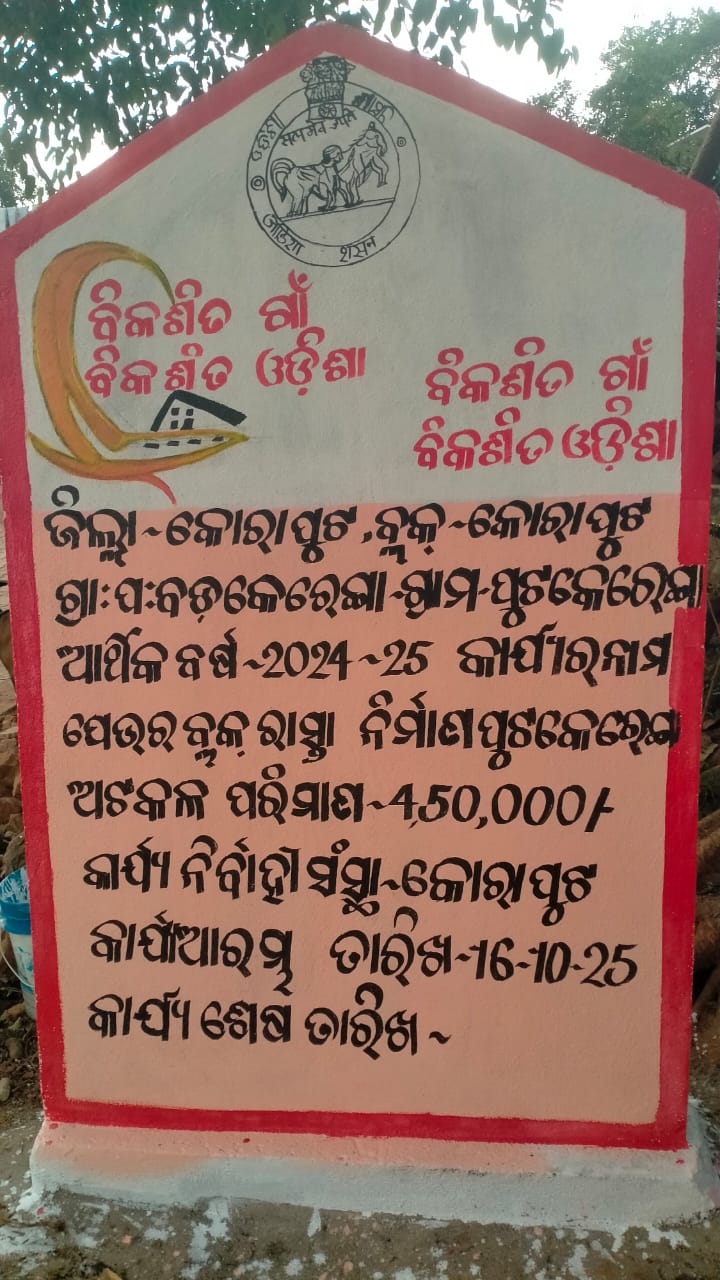 ଓଡ଼ିଶା
ଶାସନ
ବିକଶିତ ଗାଁ
ବିକଶିତ ଓଡ଼ିଶା
ବିକଶିତ ଗାଁ
ବିକଶିତ ଓଡ଼ିଶା
ଜିଲ୍ଲା~କୋରାପୁଟ,ବ୍ଲକ୍~କୋରାପୁଟ
ଗ୍ରା:ପ:ବଡ଼କେରେଙ୍ଗା-ଗ୍ରାମ-ପୁଟକେରେଙ୍ଗା
ଆର୍ଥିକ ବର୍ଷ~2024~25 କାର୍ଯ୍ୟର ନାମ
ପେଭର ବ୍ଲକ୍ ରାସ୍ତା ନିର୍ମାଣ ପୁଟକେରେଙ୍ଗା
ଅଟକଳ ପରିମାଣ~4,50,000/-
କାର୍ଯ୍ୟ ନିର୍ବାହୀ ସଂସ୍ଥା~କୋରାପୁଟ
କାର୍ଯ୍ୟଆରମ୍ଭ ତାରିଖ-16-10-25
କାର୍ଯ୍ୟ ଶେଷ ତାରିଖ~